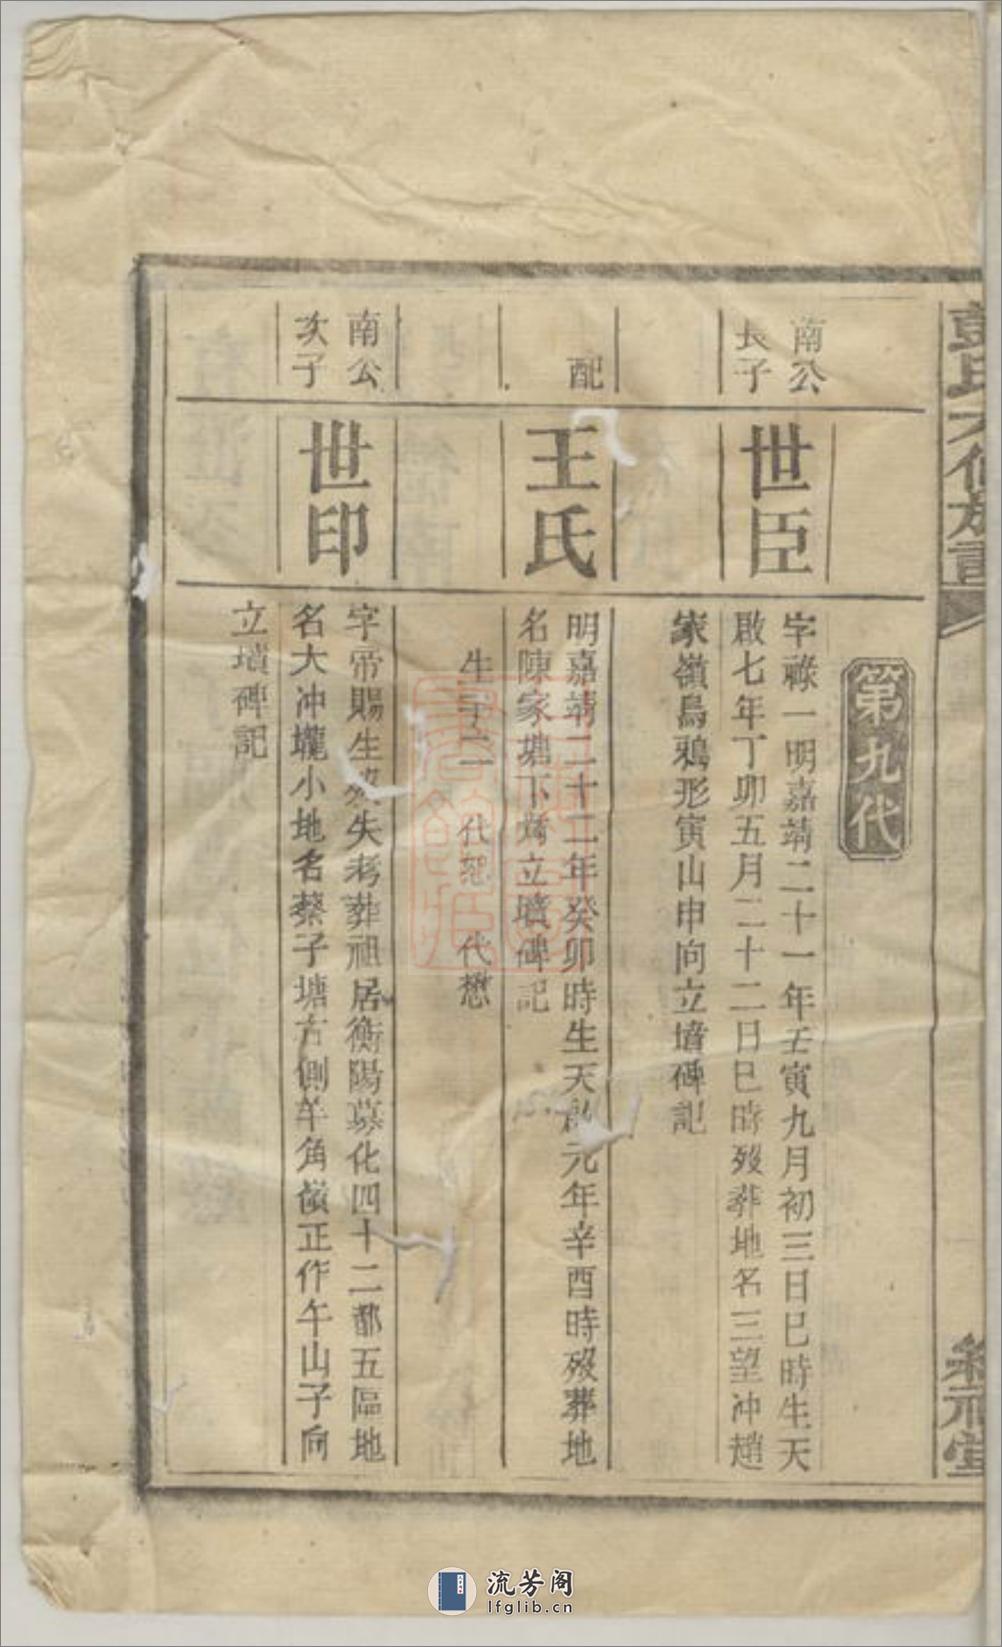 彭氏六修族譜
第九代
南公
長子
世臣
字祿一明嘉靖二十一年壬寅九月初三日巳時生天
啟七年丁卯五月二十二日巳時歿葬地名三望冲趙
家嶺烏鴉形寅山申向立墳碑記
配
王氏
明嘉靖二十二年癸卯時生天啟元年辛酉時歿葬地
名陳家塘下灣立墳碑記
生子二 代恕 代懋
南公
次子
世印
字帝賜生歿失考葬祖居衡陽慕化四十二都五區地
名大冲壠小地名蔡子塘右側羊角嶺正作午山子向
立墳碑記
流芳阁
lfglib.cn